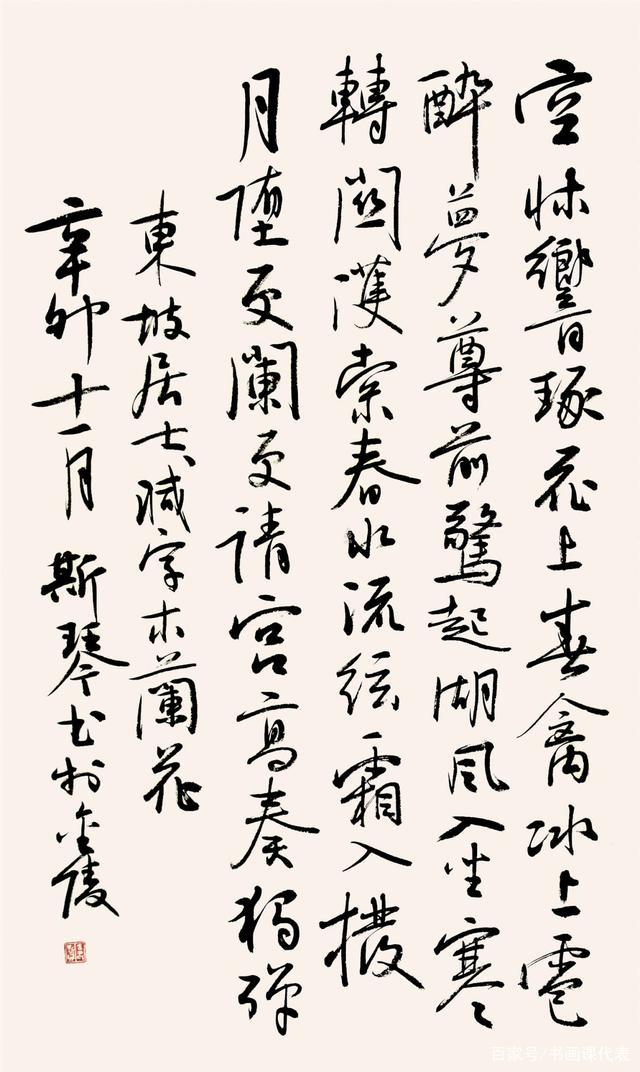 空牀響琢花上春禽冰上雹
醉夢尊前驚起湖風入坐寒
轉關濩索春水流弦霜入撥
月墮更闌更請宮高奏獨彈
東坡居士減字木蘭花
辛卯十一月斯琴书於金陵
百家号/书画课代表